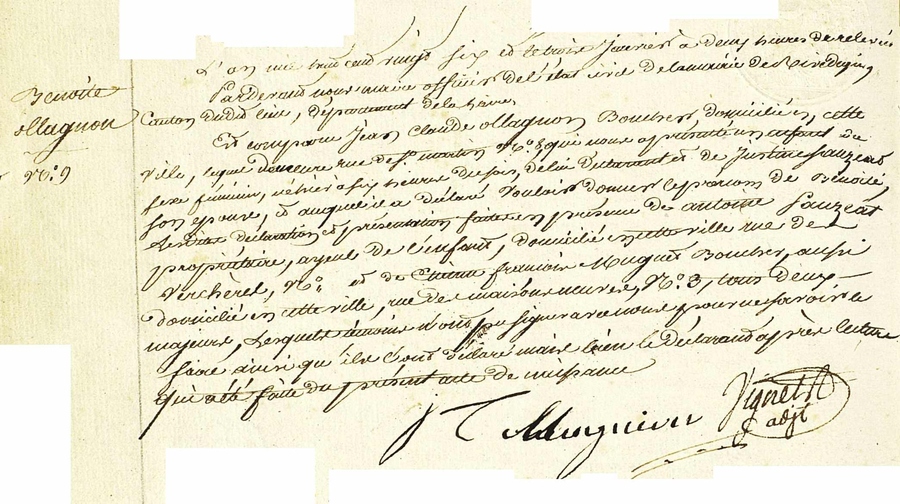 Benoite
Ollagnon
N.o 9
L'an mil huit cent vingt six et le trois Janvier a deux heures de relevée
Pardevant nous maire officier de l'état civil de la mairie de Rive de gier
Canton dudit lieu, département de la Loire,
Est comparu Jean Claude Ollagnon Boucher, domicilié en cette
ville, lequel demeure rue de St. martin N.o 8 qui nous a présenté un enfant du
sexe féminin, né hier à six heures du soir, de lui déclarant et de Justine Sauzeat
son epouse, et auquel il a déclaré vouloir donner le prenom de Benoite,
lesdites déclaration et présentation faites en présence de antoine Sauzeat
propriétaire, ayeul de l'enfant, domicilié en cette ville rue de
Vercherel, N.o et de Etienne françois Muguet Boucher, aussi
domicilié en cette ville, rue des maisons neuves, N.o 3, tous deux
majeurs, Lesquels témoins n'ont pu signer avec nous pour ne savoir le
faire ainsi qu'ils l'ont déclaré mais bien le déclarant après lecture
qui a été faite du présent acte de naissance
J C ollagnion Vignet
adjt